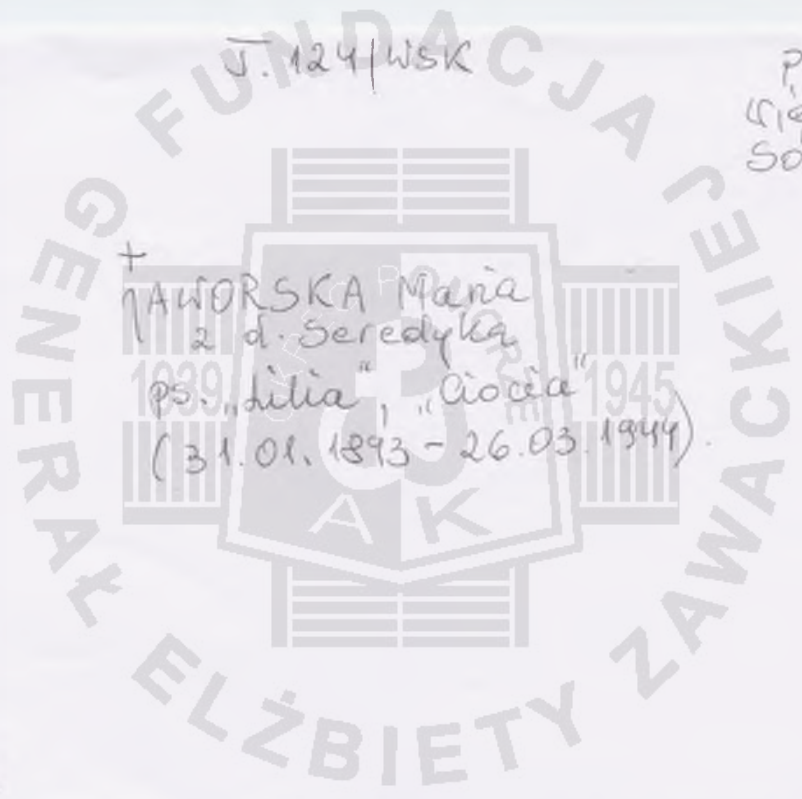 J. 124/WSK
P
Wię
So
+
JAWORSKA Maria
z d. Seredyka
ps. „Lilia”, „Ciocia”
(31.01.1893 - 26.03.1944).
FUNDACJA
GENERAŁ ELŻBIETY ZAWACKIEJ
1939
1945
AK